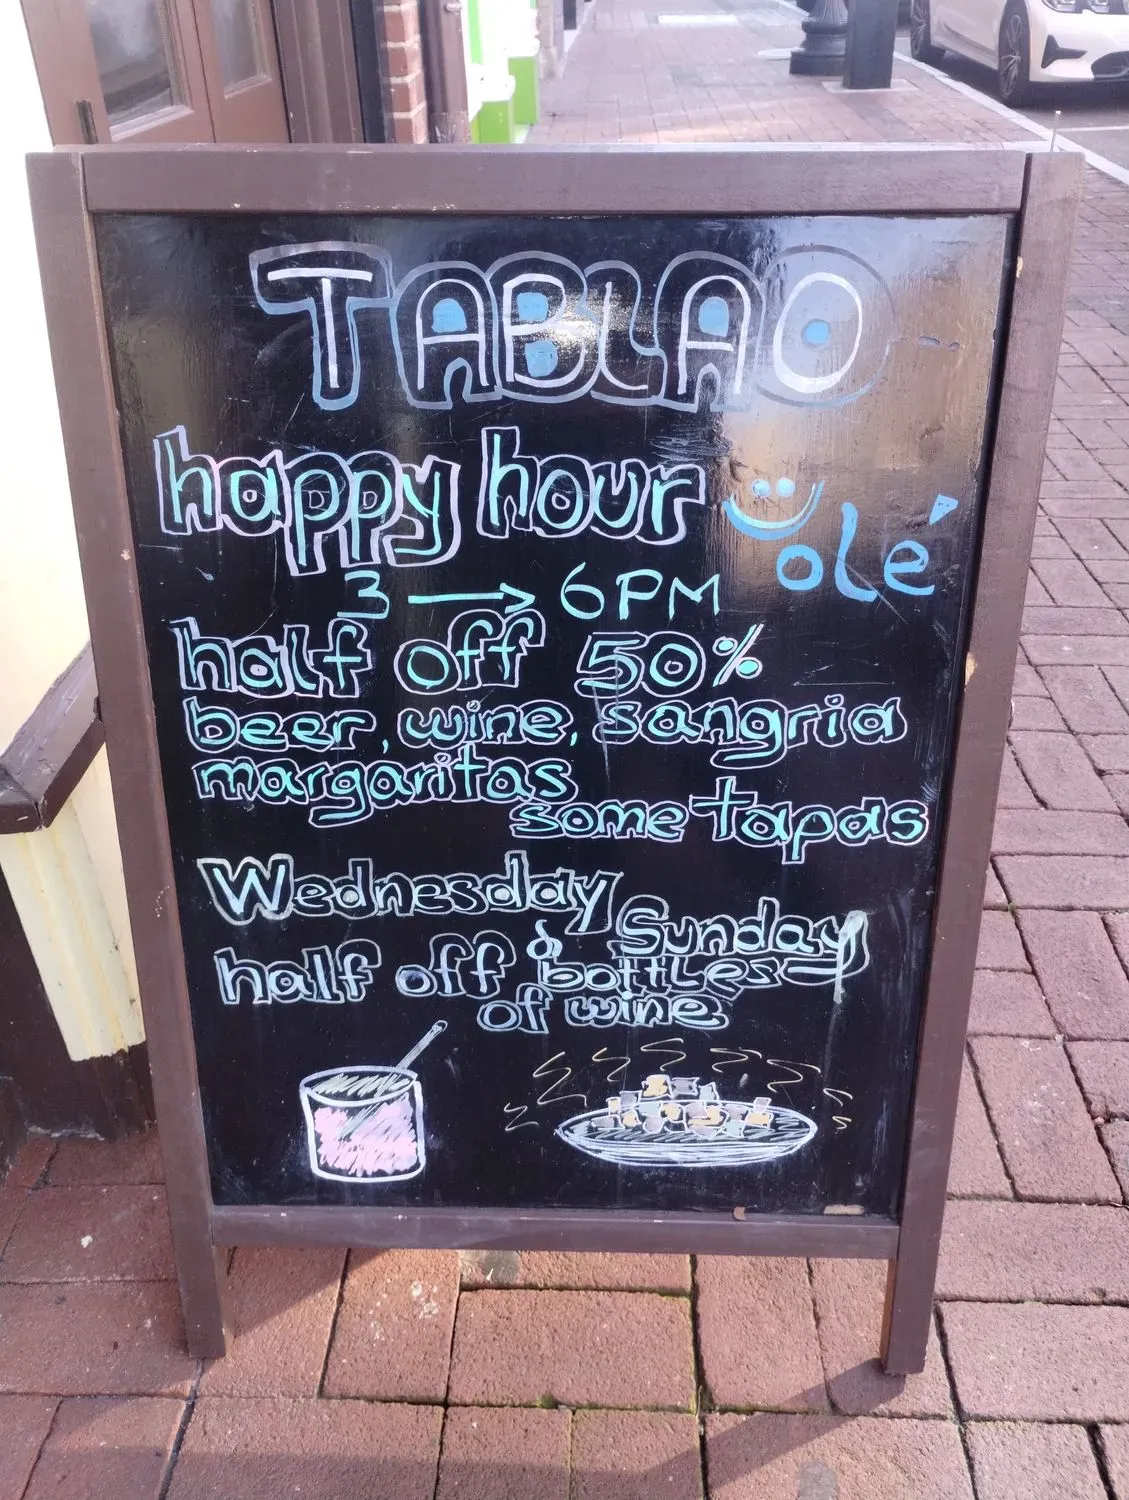 TABLAO
happy hour
olé
3 → 6PM
half off 50%
beer, wine, sangria
margaritas
some tapas
Wednesday
& Sunday
half off bottles
of wine